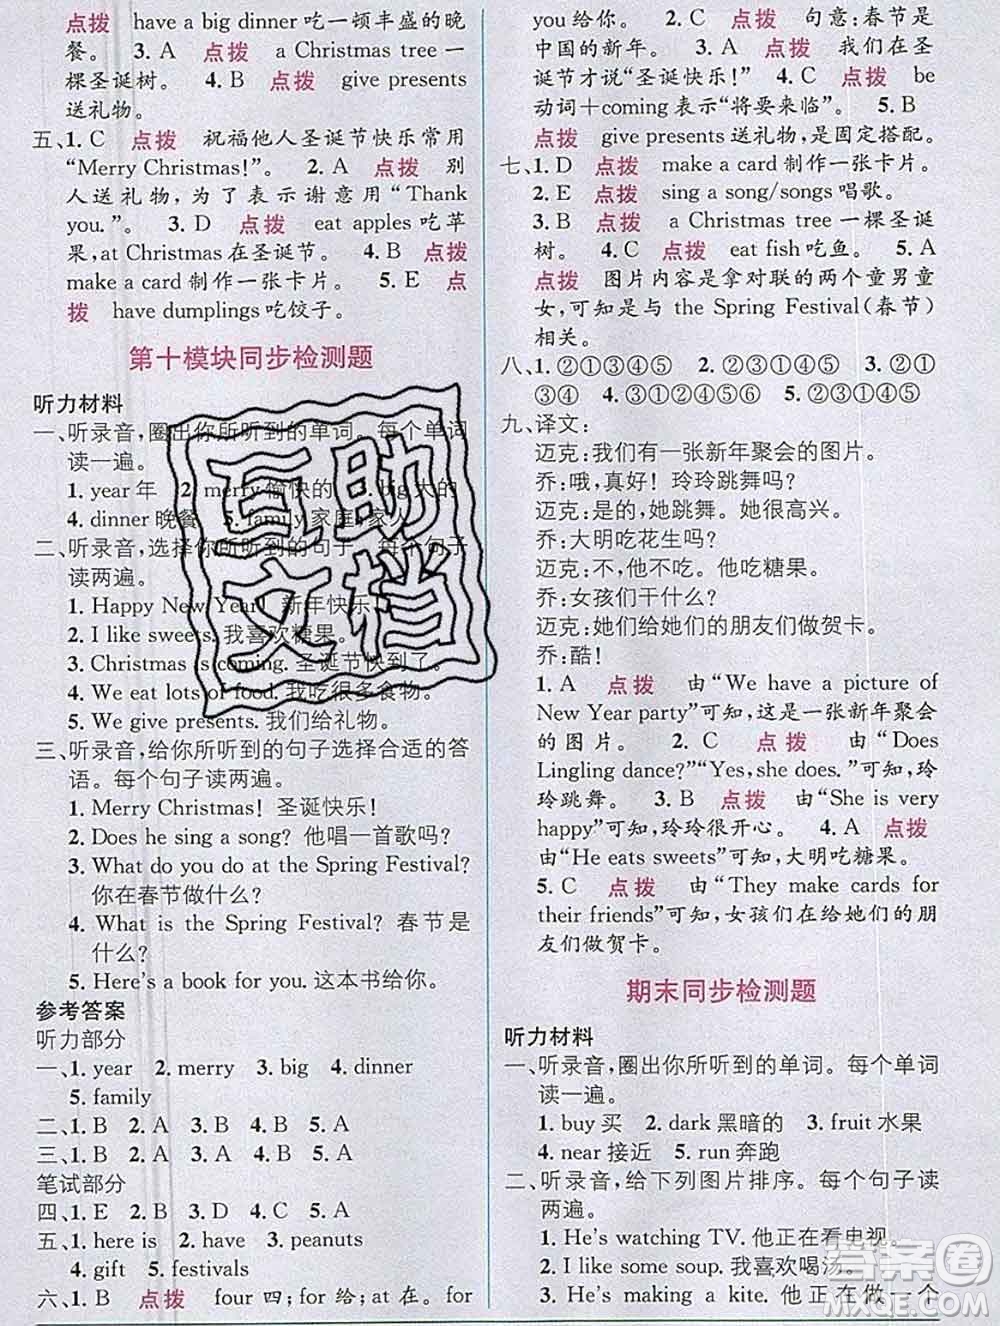 点拨 have a big dinner吃一顿丰盛的晚
餐。 3. A 点拨 a Christmas tree 一
棵圣诞树。 4. B 点拨 give presents
送礼物。
五、1. C 点拨 祝福他人圣诞节快乐常用
“Merry Christmas!”。 2. A 点拨 别
人送礼物，为了表示谢意用“Thank
you.”。 3. D 点拨 eat apples吃苹
果，at Christmas在圣诞节。 4. B 点拨
make a card 制作一张卡片。 5. E 点
拨 have dumplings吃饺子。
第十模块同步检测题
听力材料
一、听录音，圈出你所听到的单词。每个单词
读一遍。
1. year 年 2. merry愉快的 3. big大的
4. dinner 晚餐 5. family家庭;家人
二、听录音，选择你所听到的句子。每个句子
读两遍。
1. Happy New Year! 新年快乐！
2. I like sweets. 我喜欢糖果。
3. Christmas is coming. 圣诞节快到了。
4. We eat lots of food. 我吃很多食物。
5. We give presents. 我们给礼物。
三、听录音，给你所听到的句子选择合适的答
语。每个句子读两遍。
1. Merry Christmas! 圣诞快乐！
2. Does he sing a song? 他唱一首歌吗？
3. What do you do at the Spring Festival?
你在春节做什么？
4. What is the Spring Festival? 春节是
什么？
5. Here's a book for you. 这本书给你。
参考答案
听力部分
一、1. year 2. merry 3. big 4. dinner
5. family
二、1. B 2. A 3. A 4. B 5. A
三、1. B 2. A 3. B 4. B 5. A
笔试部分
四、1. E 2. B 3. D 4. C 5. A
五、1. here is 2. have 3. peanuts
4. gift 5. festivals
六、1. B 点拨 four 四;for 给;at 在。for
you给你。 2. C 点拨 句意：春节是
中国的新年。 3. A 点拨 我们在圣
诞节才说“圣诞快乐！” 4. C 点拨 be
动词＋coming 表示“将要来临”。 5. B
点拨 give presents送礼物，是固定搭配。
七、1. D 点拨 make a card制作一张卡片。
2. E 点拨 sing a song/songs 唱歌。
3. B 点拨 a Christmas tree 一棵圣诞
树。 4. C 点拨 eat fish吃鱼。 5. A
点拨 图片内容是拿对联的两个童男童
女，可知是与 the Spring Festival(春节)
相关。
八、1. ②①③④⑤ 2. ②①③④⑤ 3. ②①
③④ 4. ③①②④⑥⑤ 5. ②③①④⑤
九、译文：
迈克：我们有一张新年聚会的图片。
乔：哦，真好！玲玲跳舞吗？
迈克：是的，她跳舞。她很高兴。
乔：大明吃花生吗？
迈克：不，他不吃。他吃糖果。
乔：女孩们干什么？
迈克：她们给她们的朋友们做贺卡。
乔：酷！
1. A 点拨 由“We have a picture of
New Year party”可知，这是一张新年聚会
的图片。 2. C 点拨 由“Does
Lingling dance?”“Yes, she does.”可知，玲
玲跳舞。 3. B 点拨 由“She is very
happy”可知，玲玲很开心。 4. A 点拨
由“He eats sweets”可知，大明吃糖果。
5. C 点拨 由“They make cards for
their friends”可知，女孩们在给她们的朋
友们做贺卡。
期末同步检测题
听力材料
一、听录音，圈出你所听到的单词。每个单词
读一遍。
1. buy买 2. dark 黑暗的 3. fruit 水果
4. near 接近 5. run 奔跑
二、听录音，给下列图片排序。每个句子读
两遍。
1. He's watching TV. 他正在看电视。
2. I like some soup. 我喜欢喝汤。
3. He's making a kite. 他正在做一个
互助
文档
答案圈
MXQE.COM